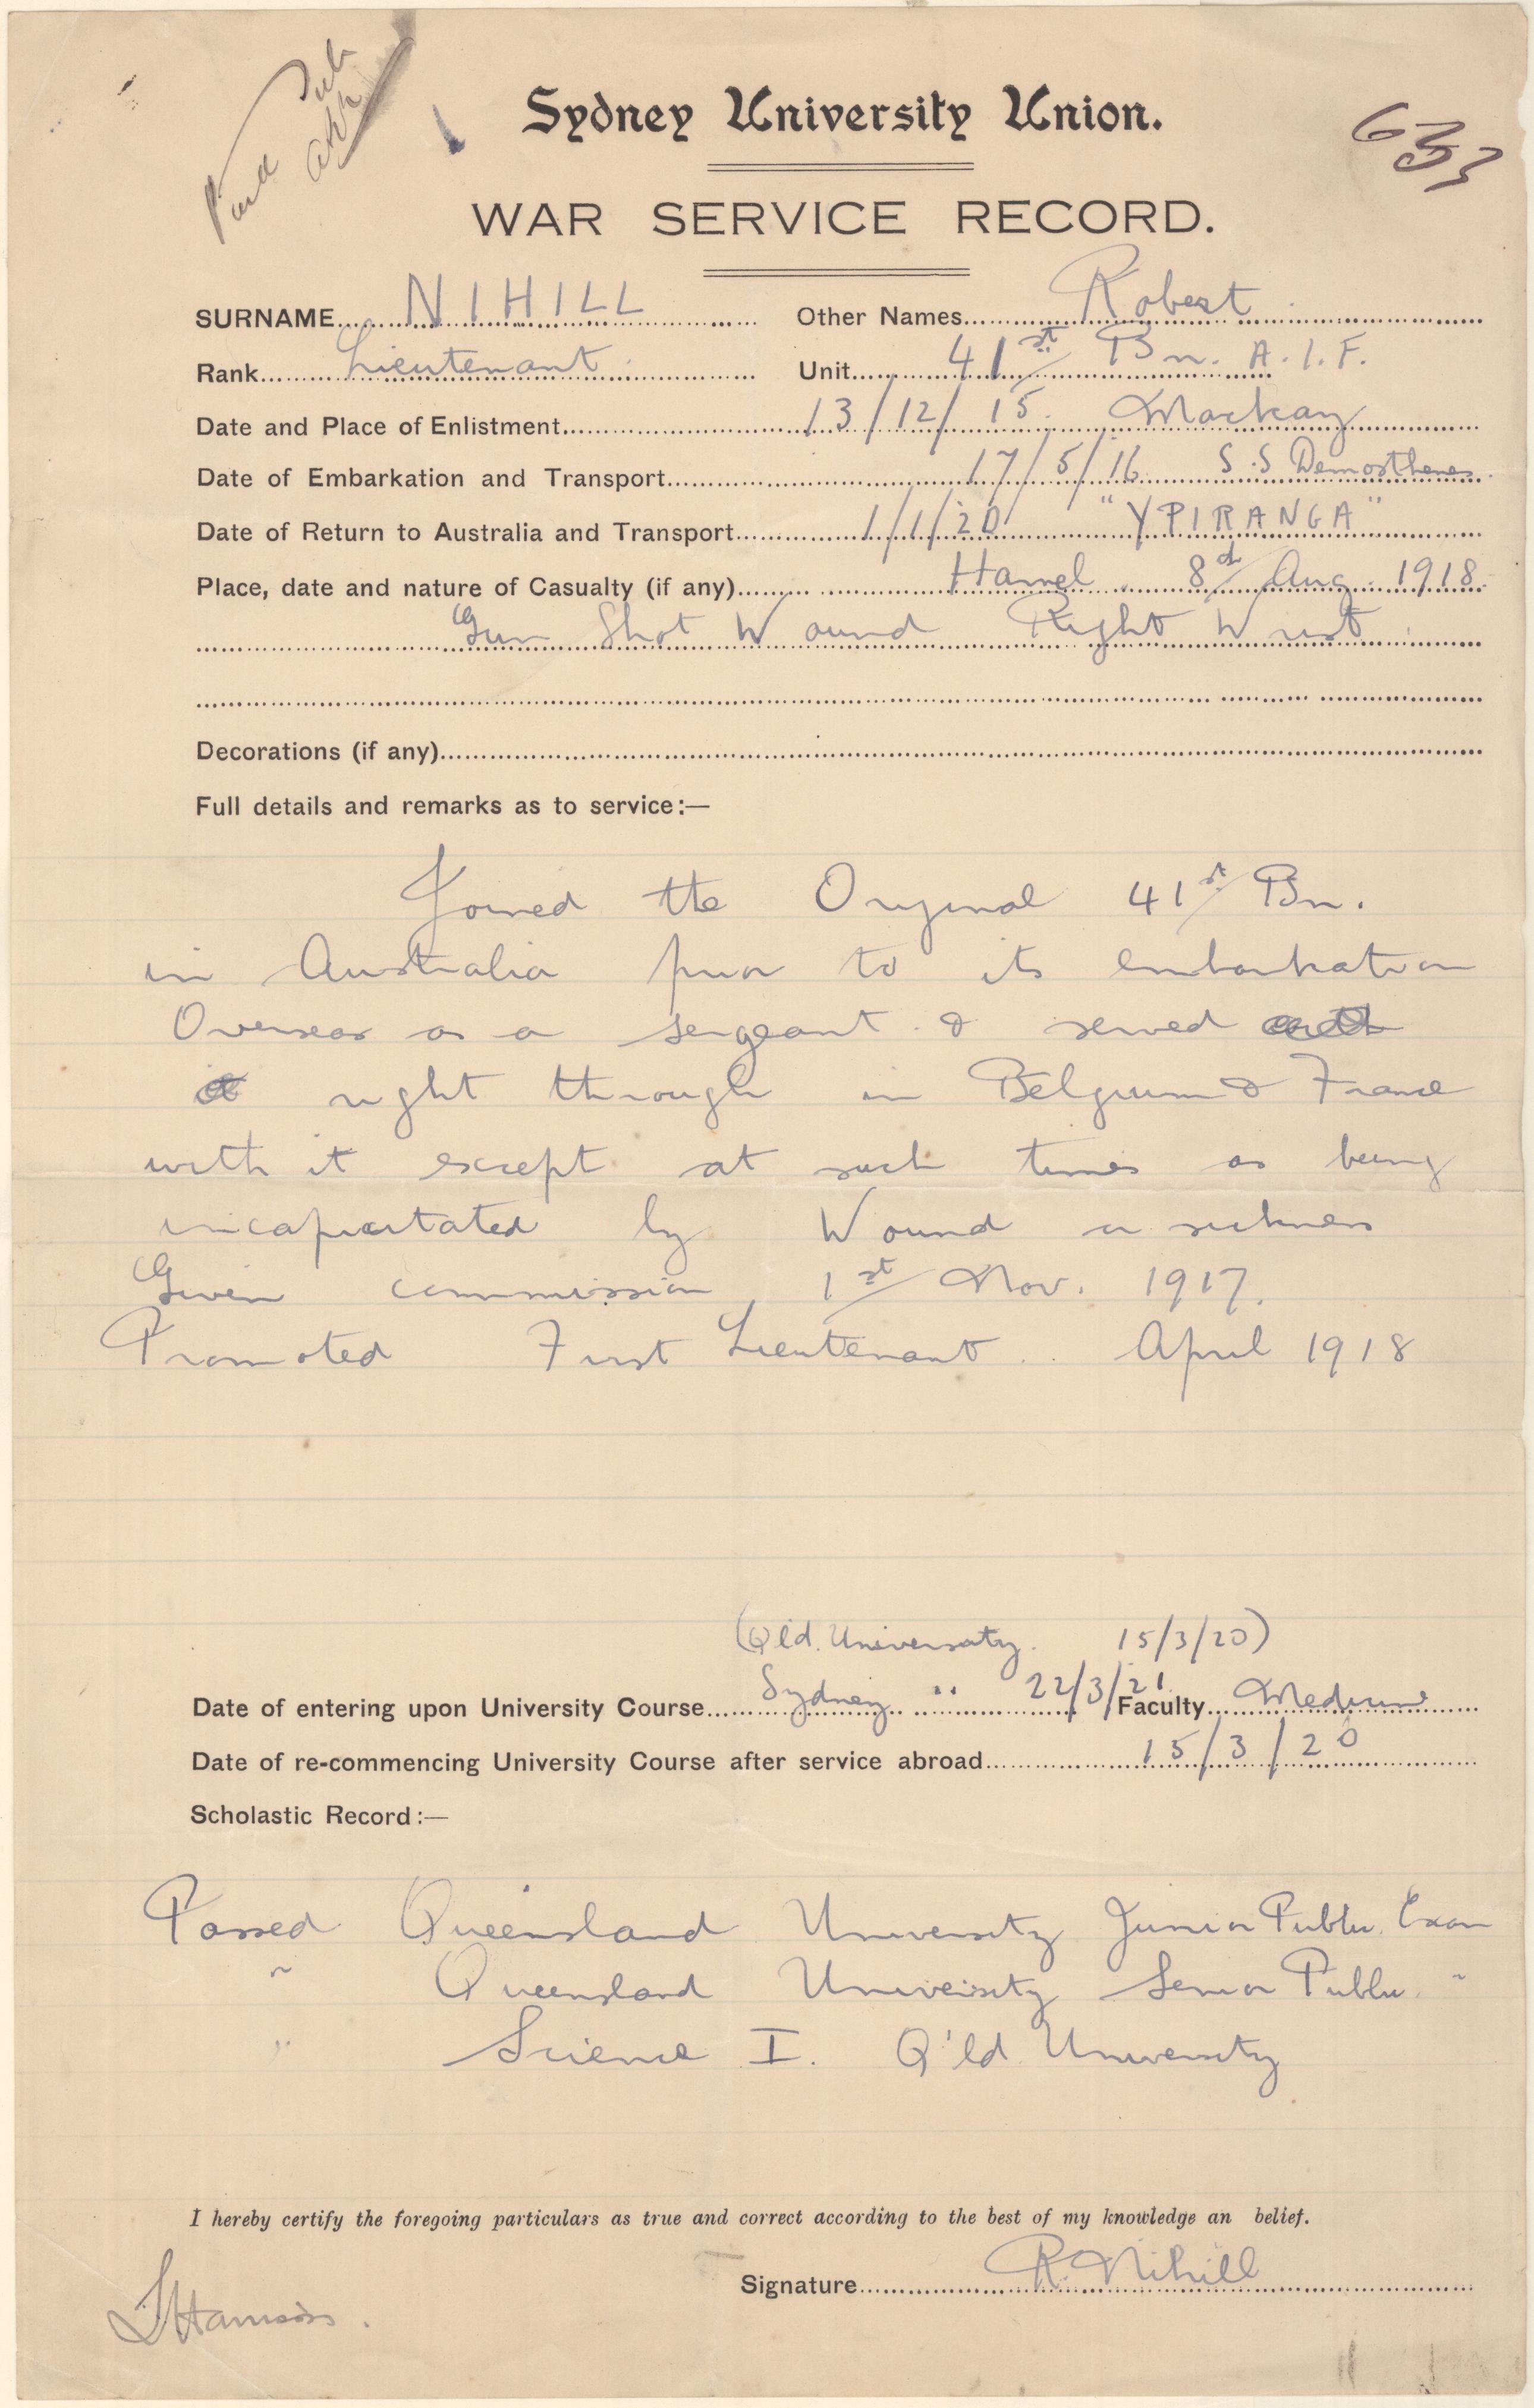 Sydney University Union.
633
WAR SERVICE RECORD.
SURNAME NIHILL Other Names Robert
Rank Lieutenant Unit 41st Bn. A.I.F.
Date and Place of Enlistment 13/12/15. Mackay
Date of Embarkation and Transport 17/5/16 S.S Demosthenes
Date of Return to Australia and Transport 1/1/20 "YPIRANGA"
Place, date and nature of Casualty (if any) Hamel. 8th Aug. 1918.
Gun Shot Wound Right Wrist
Decorations (if any)
Full details and remarks as to service:—
Joined the Original 41st Bn.
in Australia prior to its embarkation
Overseas as a sergeant & served
right through in Belgium & France
with it except at such times as being
incapacitated by Wound or sickness
Given commission 1st Nov. 1917.
Promoted First Lieutenant. April 1918
(Qld. University. 15/3/20)
Date of entering upon University Course Sydney " 22/3/21 Faculty Medicine
Date of re-commencing University Course after service abroad 15/3/20
Scholastic Record:—
Passed Queensland University Junior Public Exam
" Queensland University Senior Public "
" Science I. Q'ld University
I hereby certify the foregoing particulars as true and correct according to the best of my knowledge an belief.
Signature R. Nihill